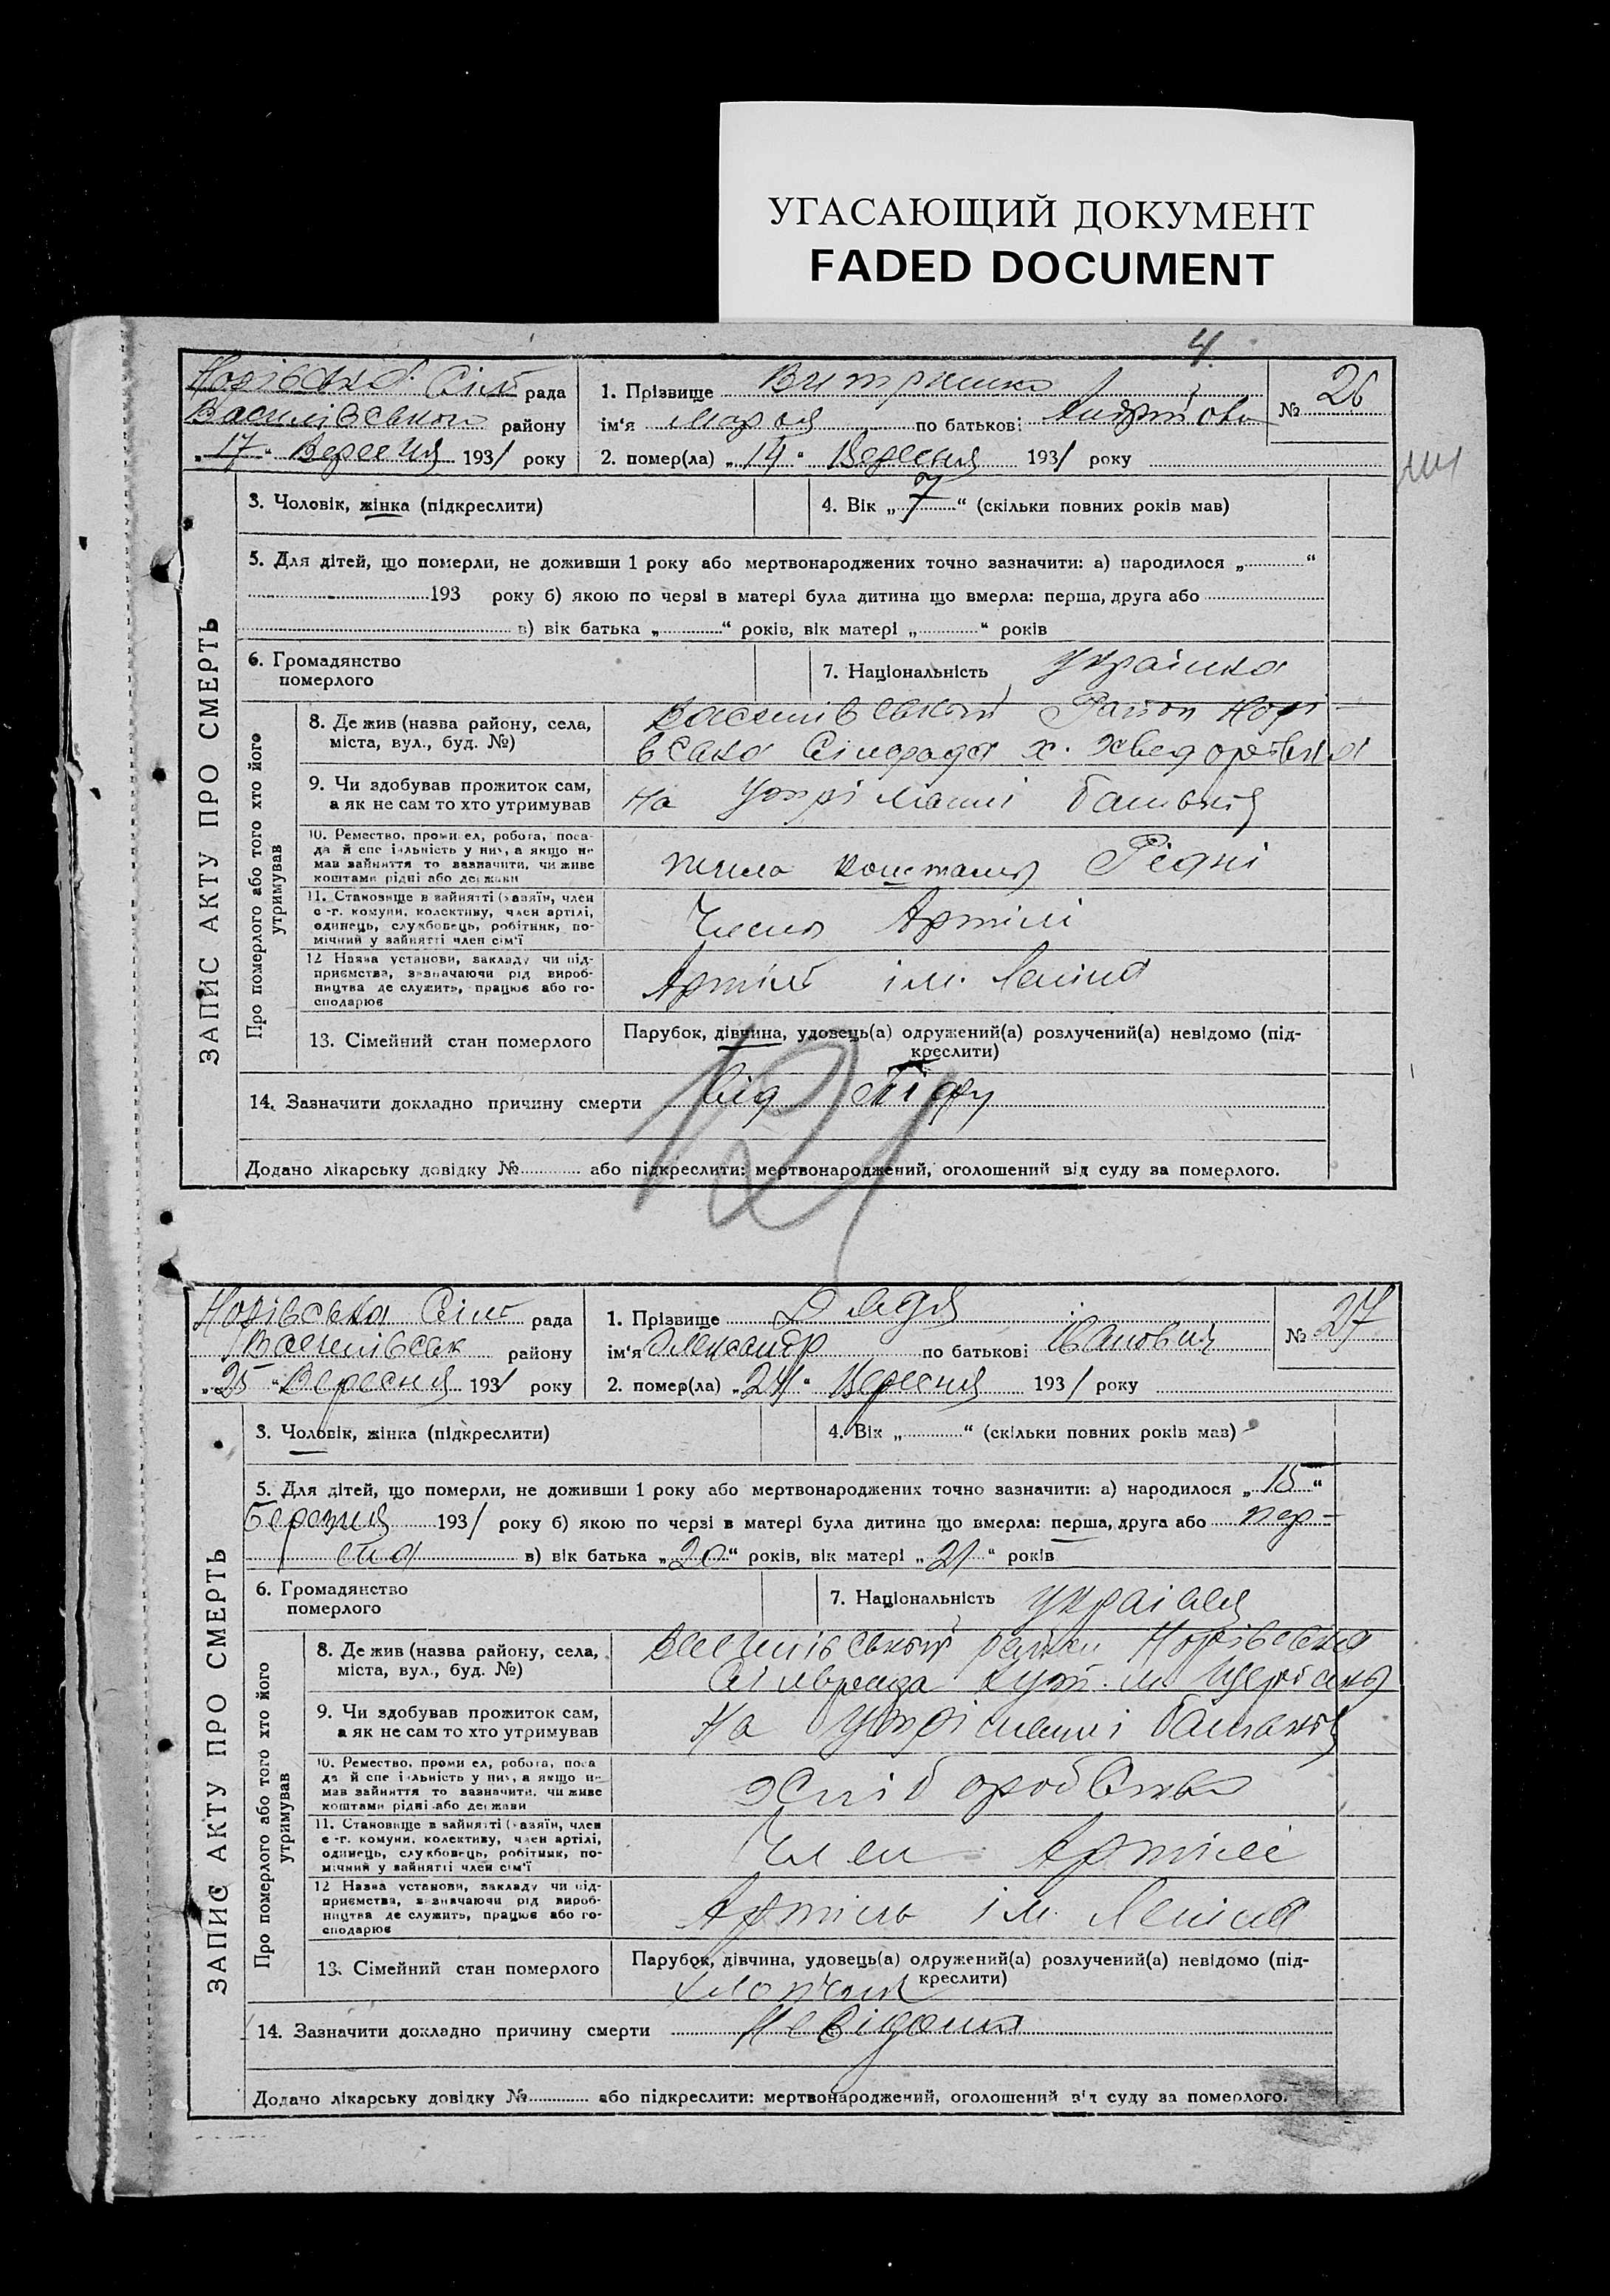 УГАСАЮЩИЙ ДОКУМЕНТ
FADED DOCUMENT
4
Норівська Сіль рада
Василівського району
„17“ Вересня 1931 року
1. Прізвище
ім'я Марія по батькові Андрійовн
№ 26
2. помер(ла) „14“ Вересня 1931 року
ЗАПИС АКТУ ПРО СМЕРТЬ
3. Чоловік, жінка (підкреслити)
4. Вік „7“ (скільки повних років мав)
5. Для дітей, що померли, не доживши 1 року або мертвонароджених точно зазначити: а) народилося „ “
193 року б) якою по черзі в матері була дитина що вмерла: перша, друга або
в) вік батька „ “ років, вік матері „ “ років
6. Громадянство
померлого
7. Національність Українка
Про померлого або того хто його
утримував
8. Де жив (назва району, села,
міста, вул., буд. №)
Василівський Район Норі-
вська Сільрада х.
9. Чи здобував прожиток сам,
а як не сам то хто утримував
На Утріманні батьків
10. Ремество, промисел, робота, поса-
да й спеціяльність у них, а якщо не
мав зайняття то зазначити, чи живе
коштами рідні або держави
жила коштами Рідні
11. Становище в зайнятті (хазяїн, член
с.-г. комуни, колективу, член артілі,
одинець, службовець, робітник, по-
мічний у зайнятті член сім'ї
Члена Артілі
12 Назва установи, закладу чи під-
приємства, зазначаючи рід вироб-
ництва де служить, працює або го-
сподарює
Артіль ім. Леніна
13. Сімейний стан померлого
Парубок, дівчина, удовець(а) одружений(а) розлучений(а) невідомо (під-
креслити)
14. Зазначити докладно причину смерти Від Тіфу
Додано лікарську довідку № або підкреслити: мертвонароджений, оголошений від суду за померлого.
Норівська Сіль рада
Василівськ району
„25“ Вересня 1931 року
1. Прізвище
ім'я Олександр по батькові Іванович
№ 27
2. помер(ла) „24“ Вересня 1931 року
ЗАПИС АКТУ ПРО СМЕРТЬ
3. Чоловік, жінка (підкреслити)
4. Вік „ “ (скільки повних років мав)
5. Для дітей, що померли, не доживши 1 року або мертвонароджених точно зазначити: а) народилося „15“
Березня 1931 року б) якою по черзі в матері була дитина що вмерла: перша, друга або пер-
ша в) вік батька „20“ років, вік матері „21“ років
6. Громадянство
померлого
7. Національність
Про померлого або того хто його
утримував
8. Де жив (назва району, села,
міста, вул., буд. №)
Василівський район Норівська
Сільрада хут.
9. Чи здобував прожиток сам,
а як не сам то хто утримував
На Утріманні батьків
10. Ремество, промисел, робота, поса-
да й спеціяльність у них, а якщо не
мав зайняття то зазначити, чи живе
коштами рідні або держави
Хліборобство
11. Становище в зайнятті (хазяїн, член
с.-г. комуни, колективу, член артілі,
одинець, службовець, робітник, по-
мічний у зайнятті член сім'ї
Член Артілі
12 Назва установи, закладу чи під-
приємства, зазначаючи рід вироб-
ництва де служить, працює або го-
сподарює
Артиль ім. Леніна
13. Сімейний стан померлого
Парубок, дівчина, удовець(а) одружений(а) розлучений(а) невідомо (під-
креслити)
14. Зазначити докладно причину смерти Невідома
Додано лікарську довідку № або підкреслити: мертвонароджений, оголошений від суду за померлого.